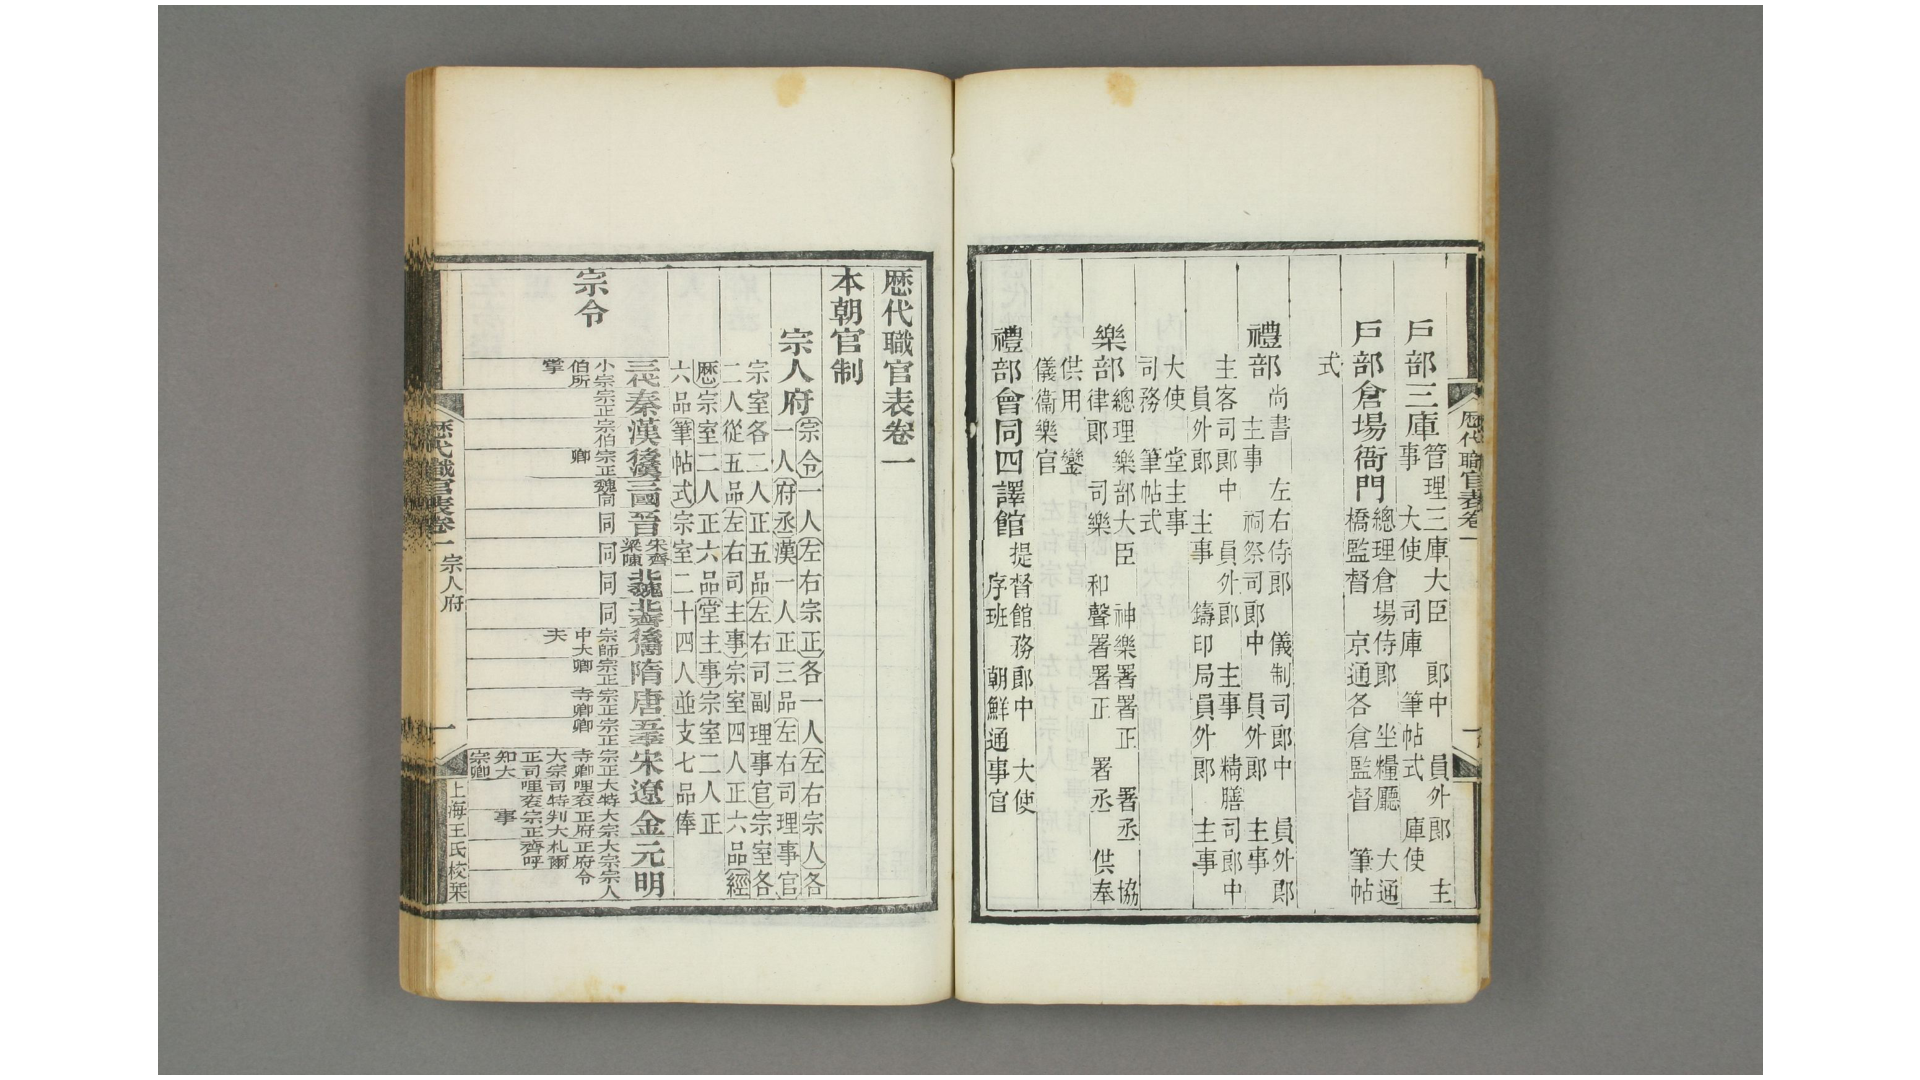 歴代職官表卷一
戶部三庫 管理三庫大臣 郎中 員外郎 主
事 大使 司庫 筆帖式 庫使
戶部倉場衙門 總理倉場侍郎 坐糧廳 大通
橋監督 京通各倉監督 筆帖
式
禮部 尚書 左右侍郎 儀制司郎中 員外郎
主事 祠祭司郎中 員外郎 主事
主客司郎中 員外郎 主事 精膳司郎中
員外郎 主事 鑄印局員外郎 主事
大使 堂主事
司務 筆帖式
樂部 總理樂部大臣 神樂署署正 署丞 協
律郎 司樂 和聲署署正 署丞 供奉
供用 鑾
儀衞樂官
禮部會同四譯館 提督館務郎中 大使
序班 朝鮮通事官
歴代職官表卷一
本朝官制
宗人府 宗令一人左右宗正各一人左右宗人各
一人府丞漢一人正三品左右司理事官
宗室各二人正五品左右司副理事官宗室各
二人從五品左右司主事宗室四人正六品經
歴宗室二人正六品堂主事宗室二人正
六品筆帖式宗室二十四人並支七品俸
三代秦漢後漢三國晉宋齊梁陳北魏北齊後周隋唐五季宋遼金元明
宗令
小宗宗正宗伯宗正魏同 同 同 同 同 宗師宗正宗正宗正宗正大特大宗大宗宗人
伯所 卿 中大卿 寺卿卿 寺卿哩袞正府正府令
掌 夫 大宗司特判大札爾
正司哩袞宗正齊呼
知大 事
宗卿
歴代職官表卷一 宗人府 一 上海王氏校栞